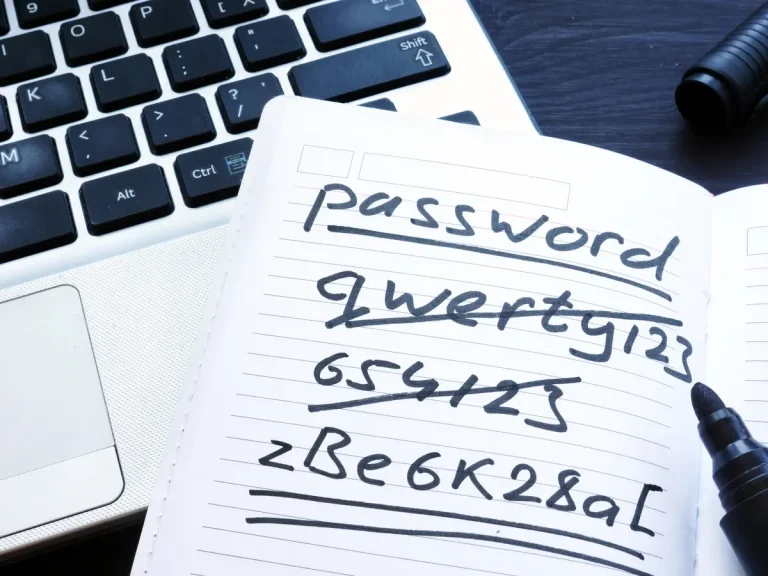 9
O
P
{ [
I
L
: ;
" '
Shift
K
< ,
> .
? /
M
Alt
Ctrl
password
qwerty123
654123
zBe6K28a[